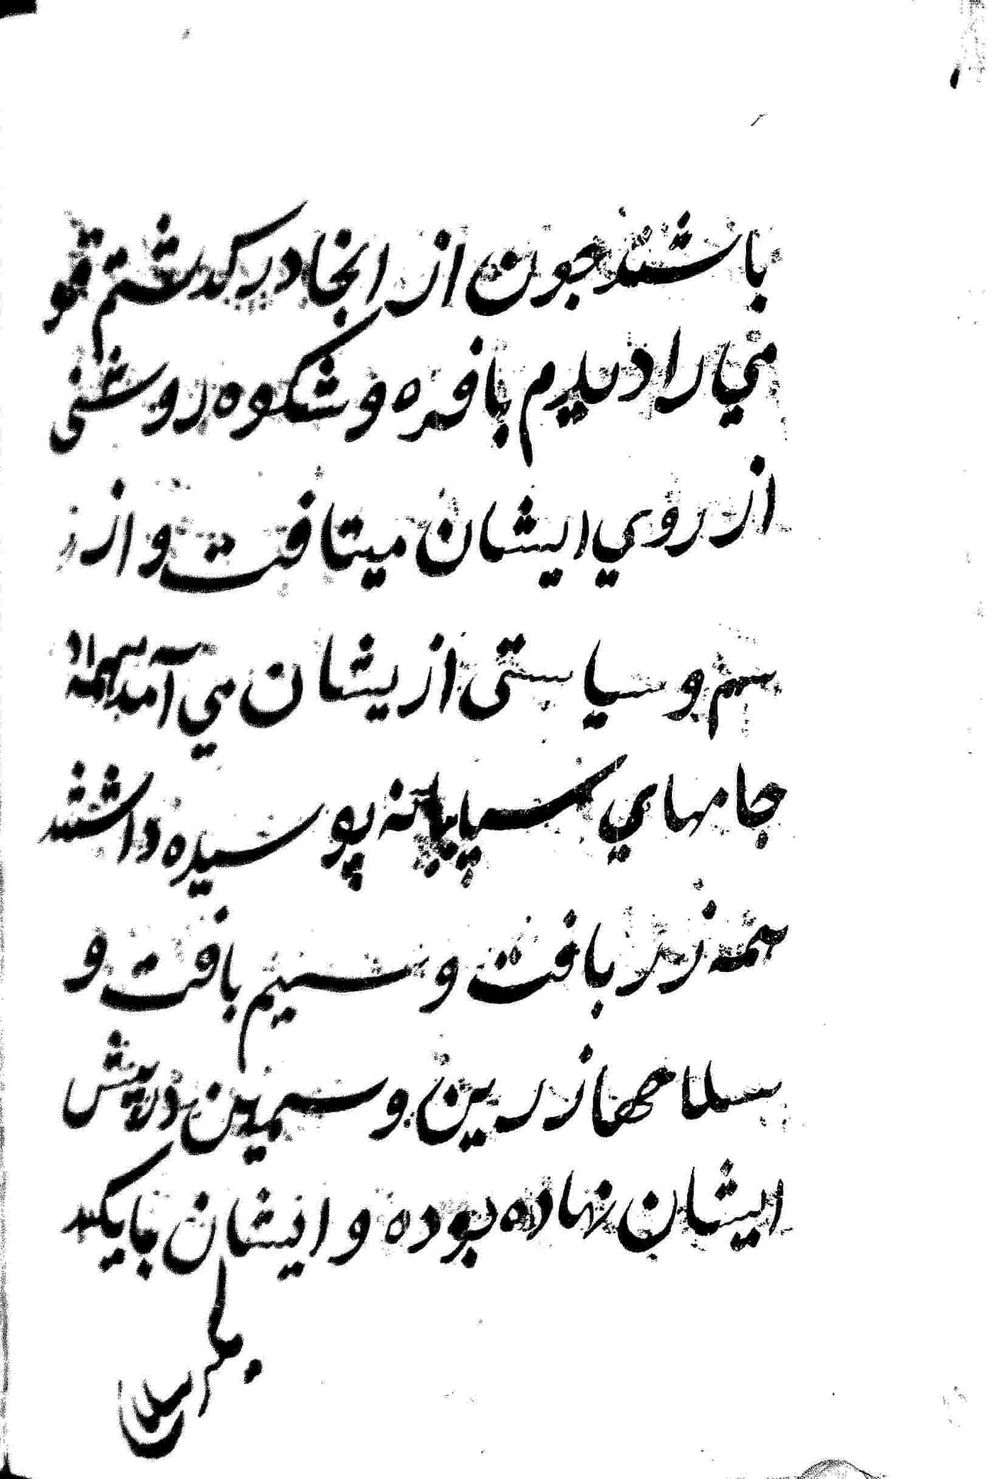 باشند جون از انجا در کدشتم قو
مي را ديدم بافره و شکوه روشنی
از روي ايشان ميتافت و از
سهم و سياستی ازيشان مي آمد همه
جامهاي سپاهيانه پوسيده داشتند
همه زر بافت و سيم بافت و
سلاحها زرين و سيمين در پيش
ايشان نهاده بوده و ايشان بايکد